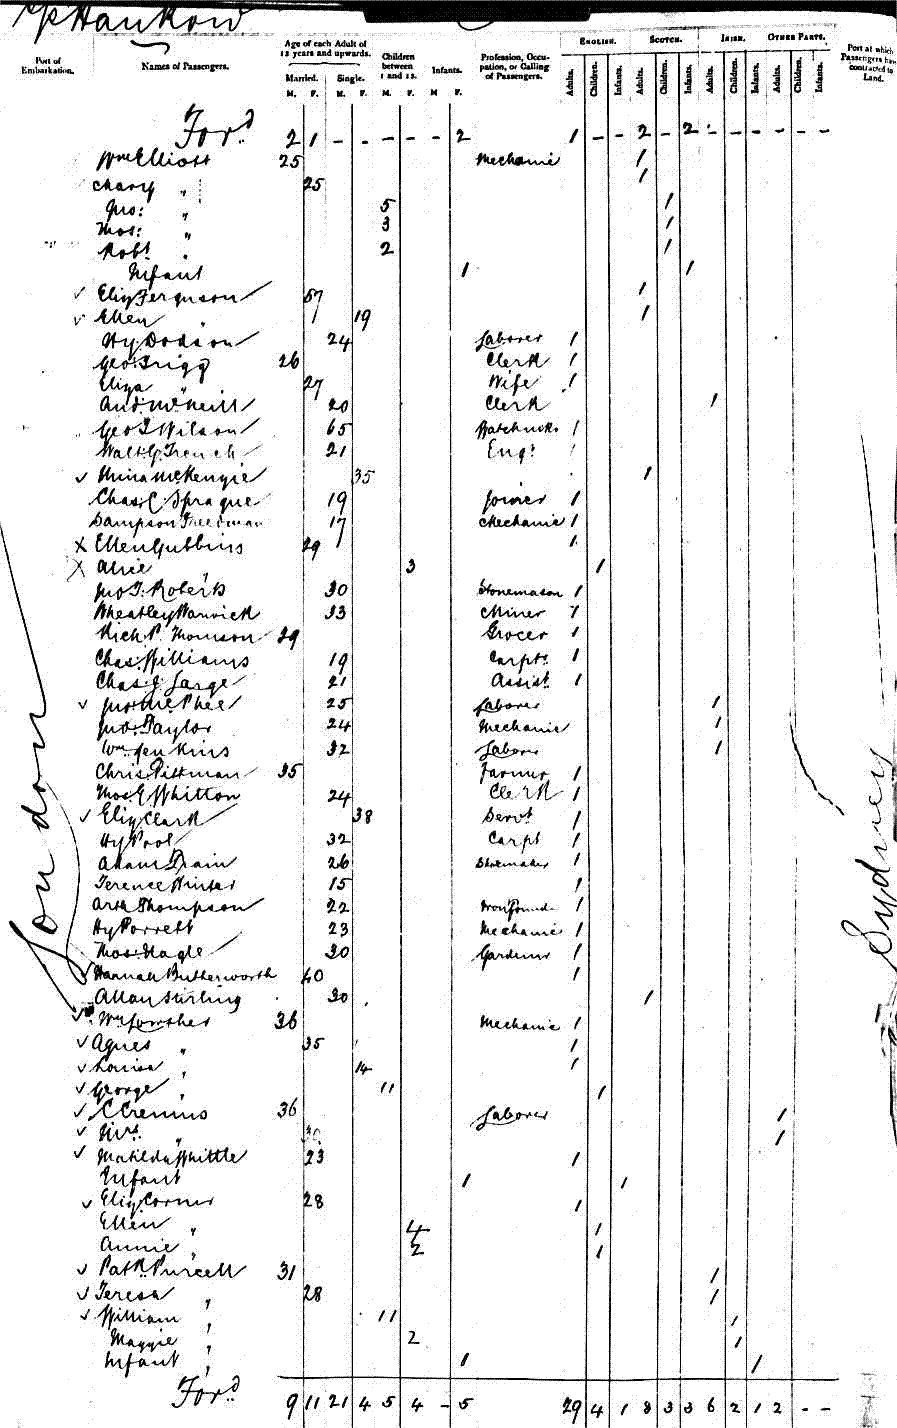 Hankow
Port of Embarkation. Names of Passengers. Age of each Adult of 12 years and upwards. Children between 1 and 12. Infants. Profession, Occupation, or Calling of Passengers. English. Scotch. Irish. Other Parts. Port at which Passengers have contracted to Land.
Married. Single.
M. F. M. F. M. F. M F. Adults. Children. Infants. Adults. Children. Infants. Adults. Children. Infants. Adults. Children. Infants.
For'd 2 1 - - - - - 2 1 - - 2 - 2 - - - - - -
Wm Elliott 25 Mechanic 1
Mary " 25 1
Jno: " 5 1
Thos: " 3 1
Robt " 2 1
Infant 1 1
✓ Eliz Ferguson 57 1
✓ Ellen " 19 1
Hy Dodson 24 Laborer 1
Geo Trigg 26 Clerk 1
Eliza " 27 Wife 1
And. McNeill 20 Clerk 1
Geo T Wilson 65 Watchmkr 1
Walt G French 21 Engr 1
✓ Mina McKenzie 35 1
Chas. C. Sprague 19 Joiner 1
Sampson Freedman 17 Mechanic 1
X Ellen Gubbins 29 1
X Alice " 3 1
Jno T. Roberts 30 Stonemason 1
Wheatley Warwick 33 Miner 1
Rich. P. Thomson 29 Grocer 1
Chas. Williams 19 Carptr 1
Chas. J. Large 21 Assist. 1
✓ Jno McPhee 25 Laborer 1
Jno. Taylor 24 Mechanic 1
Wm Jenkins 32 Laborer 1
Chris. Pittman 35 Farmer 1
Thos. G Whitton 24 Clerk 1
✓ Eliz Clark 38 Servt 1
Hy Pool 32 Carpt 1
Adam Drain 26 Shoemaker 1
Terence Winter 15 1
Arth Thompson 22 Iron Found 1
Hy Porrett 23 Mechanic 1
Thos. Nagle 30 Gardener 1
✓ Hannah Butterworth 40 1
Allan Stirling 30 1
✓ Wm Fowsher 36 Mechanic 1
✓ Agnes " 35 1
✓ Louisa " 14 1
✓ George " 11 1
✓ C Cremins 36 Laborer 1
✓ Mrs. " 30 1
✓ Matilda Whittle 23 1
Infant 1 1
✓ Eliz Corner 28 1
Ellen " 4 1
Annie " 2 1
✓ Patk. Purcell 31 1
✓ Teresa " 28 1
✓ William " 11 1
Maggie " 2 1
Infant " 1 1
For'd 9 11 21 4 5 4 - 5 29 4 1 8 3 3 6 2 1 2 - -
London
Sydney